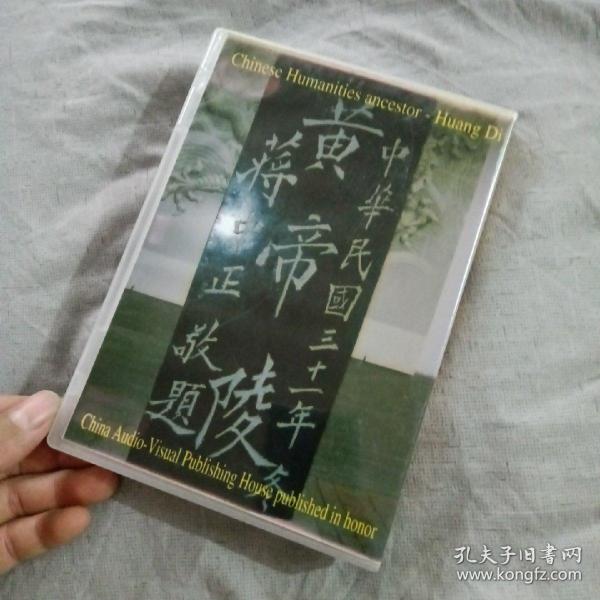 Chinese Humanities ancestor - Huang Di
中華民國三十一年冬
黃帝陵
蔣中正敬題
China Audio-Visual Publishing House published in honor
孔夫子旧书网
www.kongfz.com